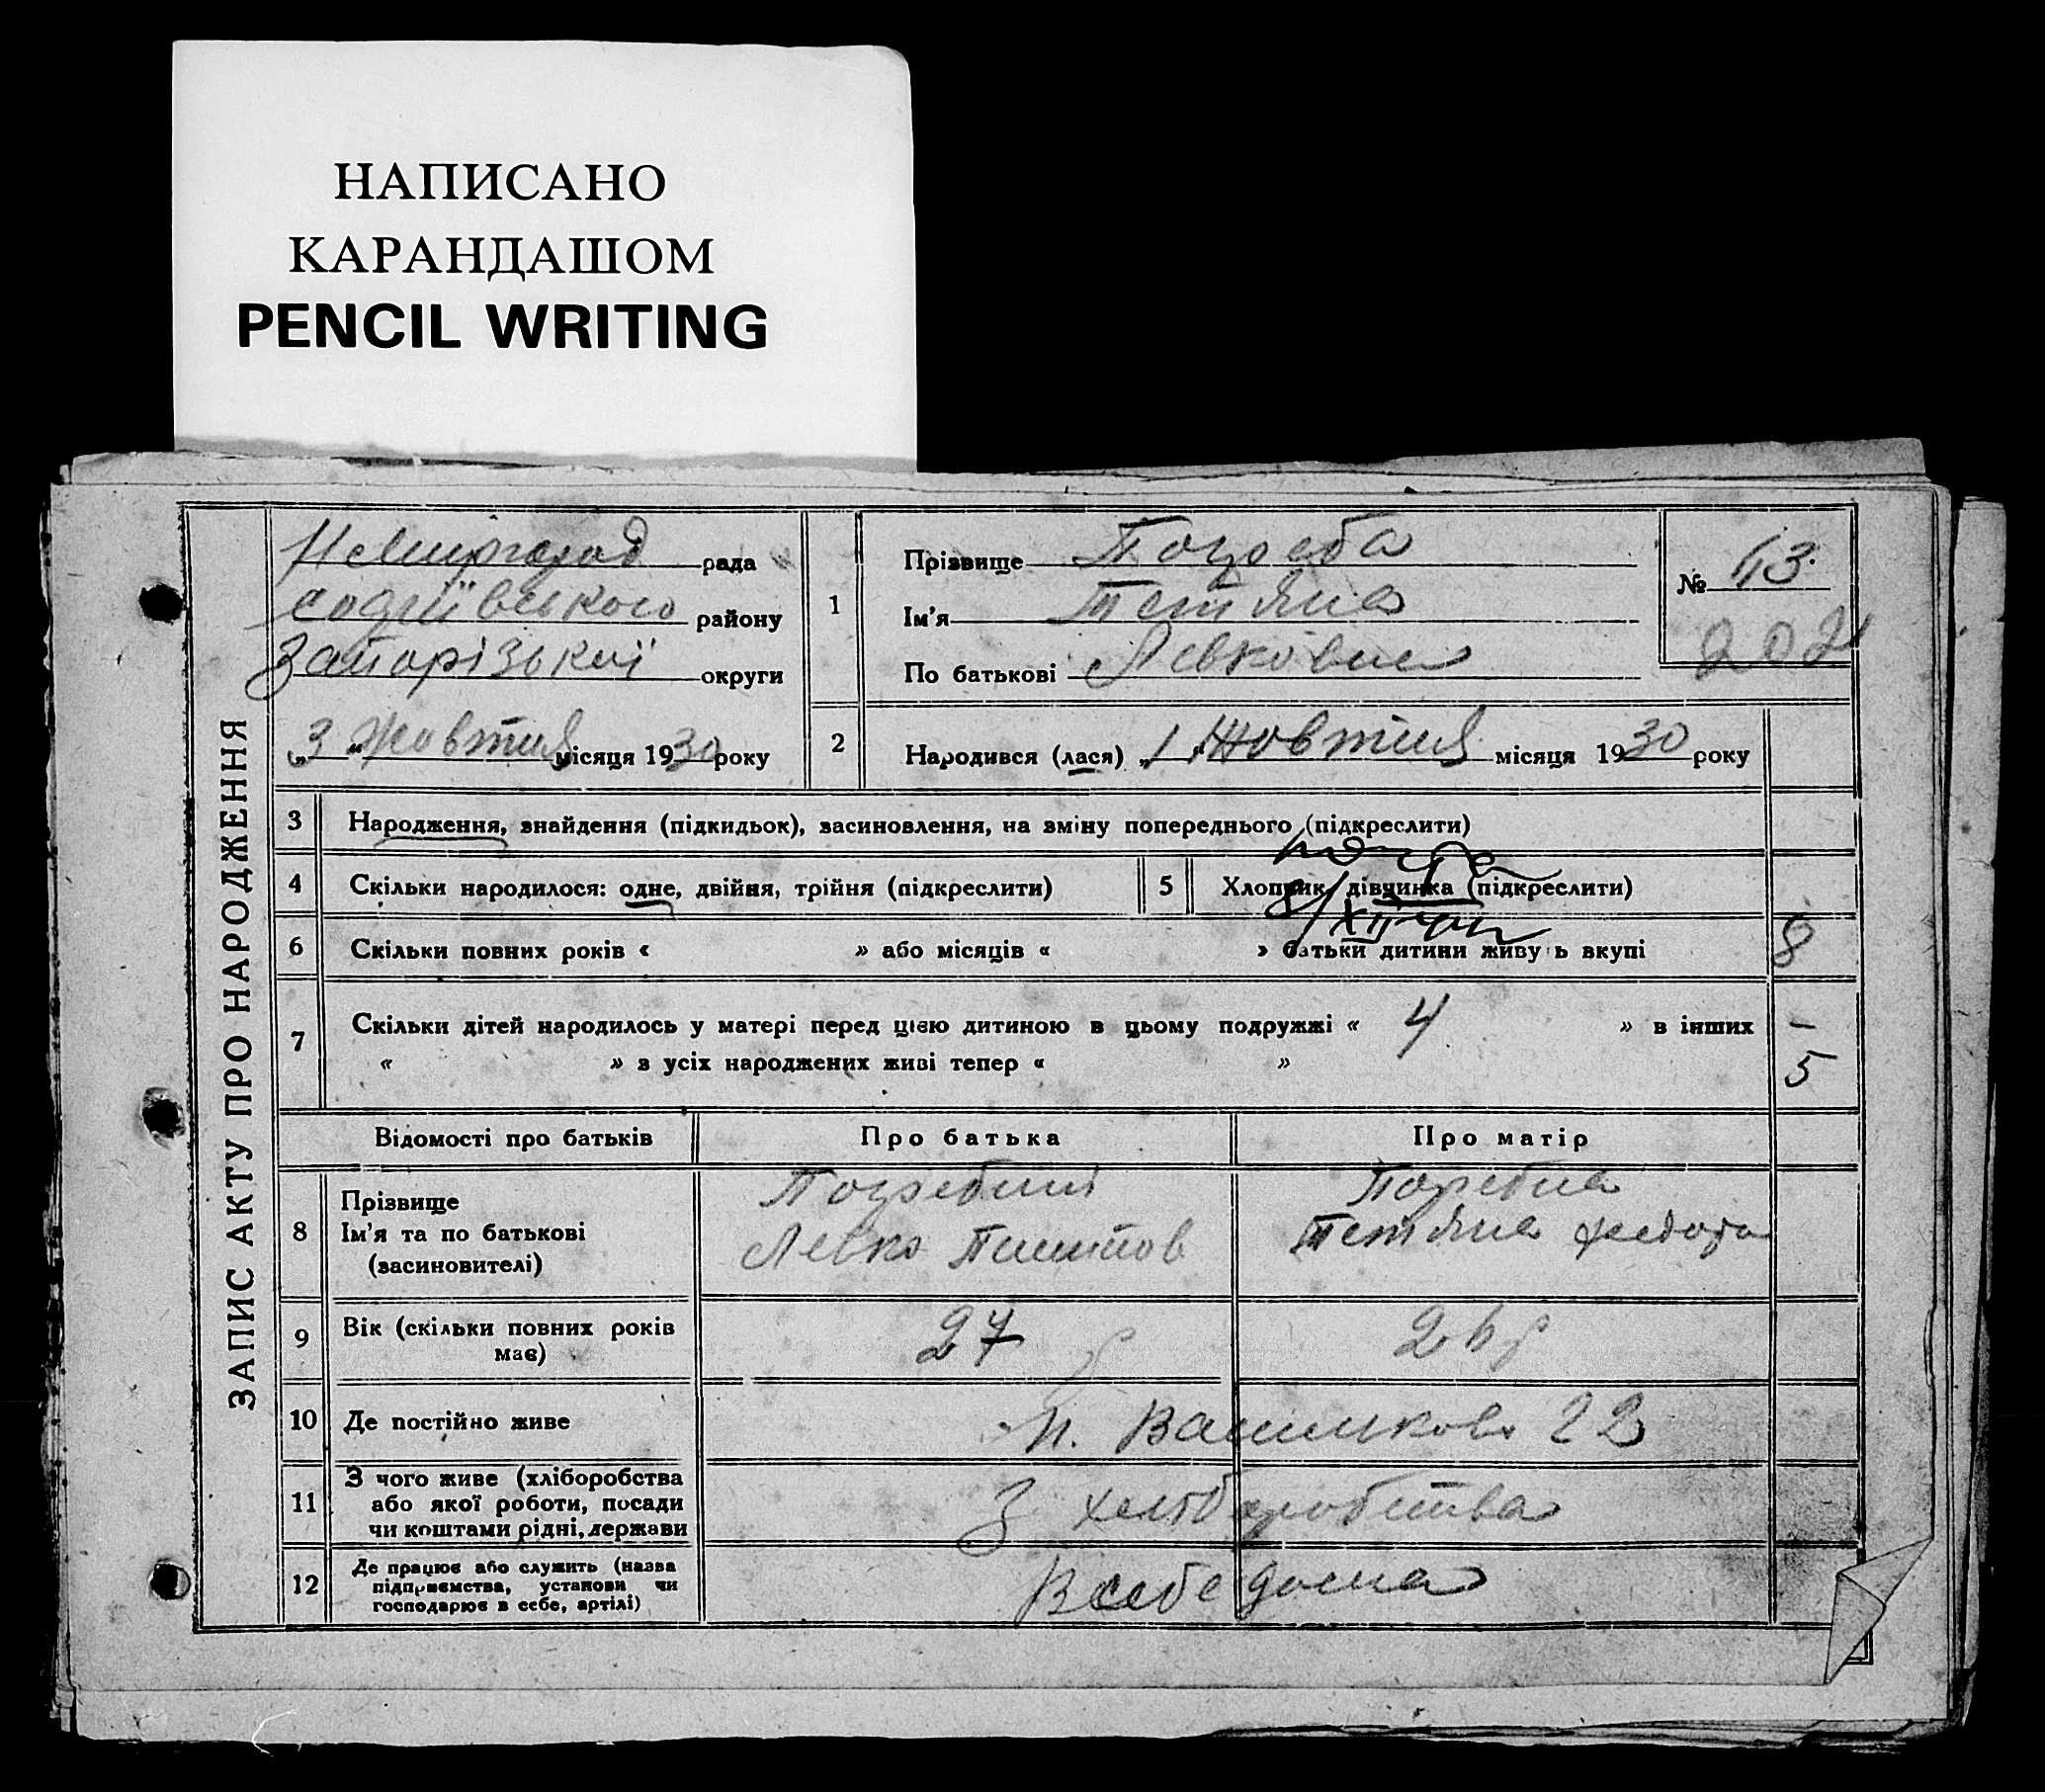 НАПИСАНО
КАРАНДАШОМ
PENCIL WRITING
ЗАПИС АКТУ ПРО НАРОДЖЕННЯ
рада
району
Запорізької округи
„3 Жовтня місяця 1930 року
1
Прізвище
Ім'я Тетяна
По батькові Левковна
№ 13.
2
Народився (лася) „1 Жовтня місяця 1930 року
3
Народження, знайдення (підкидьок), засиновлення, на зміну попереднього (підкреслити)
4
Скільки народилося: одне, двійня, трійня (підкреслити)
5
Хлопчик, дівчинка (підкреслити)
6
Скільки повних років « » або місяців « » батьки дитини живуть вкупі
8
7
Скільки дітей народилось у матері перед цією дитиною в цьому подружжі « 4 » в інших –
« » з усіх народжених живі тепер « » 5
Відомості про батьків
Про батька
Про матір
8
Прізвище
Ім'я та по батькові
(засиновителі)
Левко
Тетяна
9
Вік (скільки повних років
має)
27
26
10
Де постійно живе
22
11
З чого живе (хліборобства
або якої роботи, посади
чи коштами рідні, держави
З хліборобства
12
Де працює або служить (назва
підприємства, установи чи
господарює в себе, артілі)
В себе дома